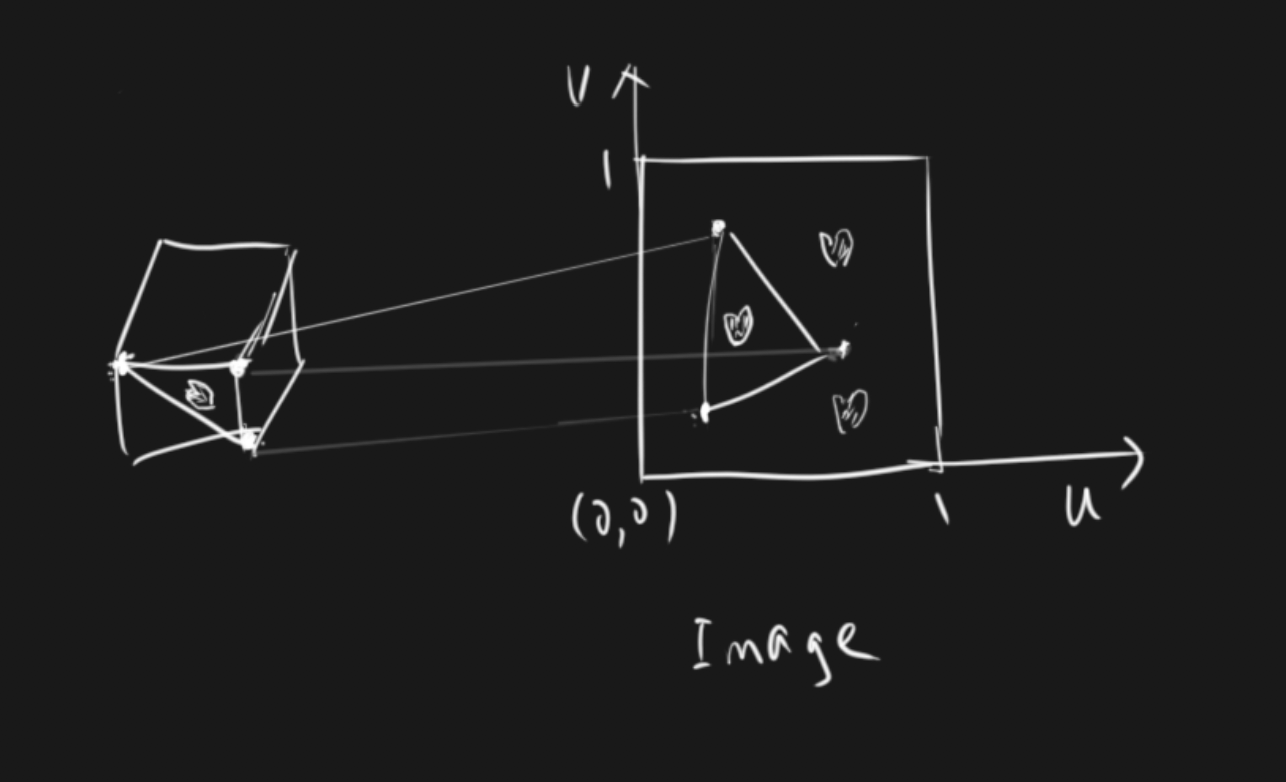 V
1
(0,0)
1
u
Image